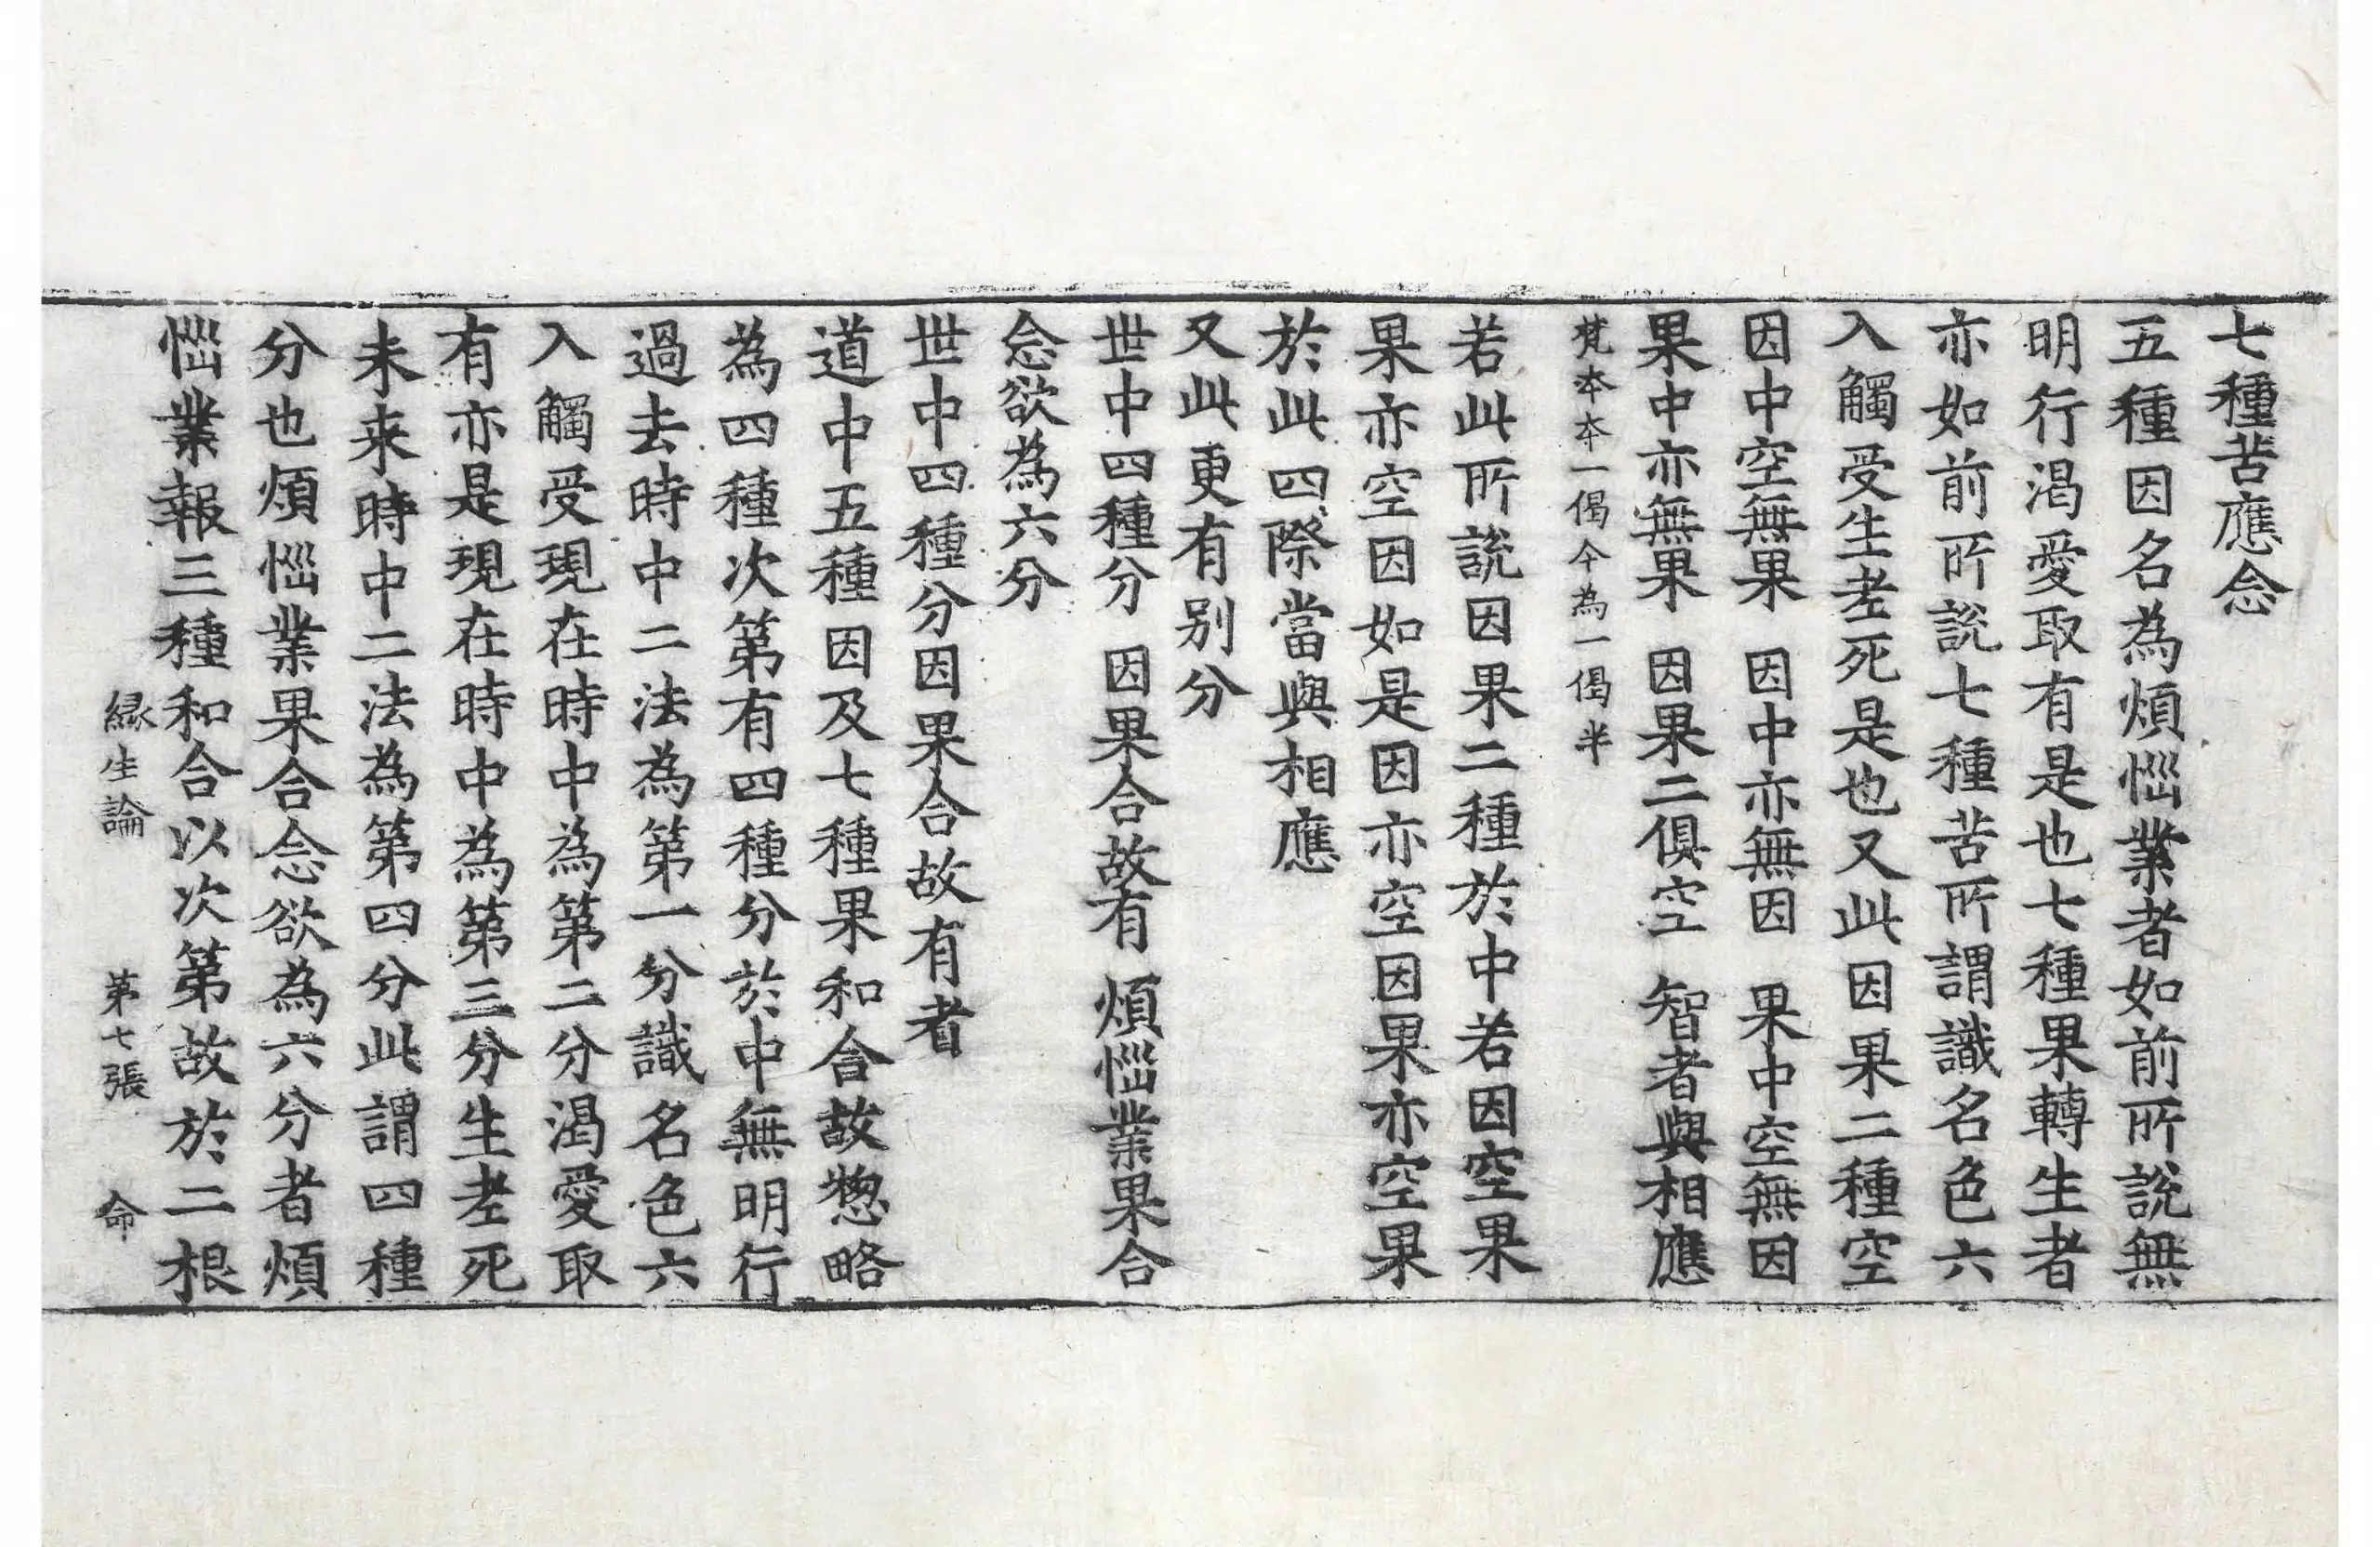 七種苦應念
五種因名為煩惱業者如前所說無
明行渴愛取有是也七種果轉生者
亦如前所說七種苦所謂識名色六
入觸受生老死是也又此因果二種空
因中空無果　因中亦無因　果中空無因
果中亦無果　因果二俱空　智者與相應
梵本本一偈今為一偈半
若此所說因果二種於中若因空果
果亦空因如是因亦空因果亦空果
於此四際當與相應
又此更有別分
世中四種分　因果合故有　煩惱業果合
念欲為六分
世中四種分因果合故有者
道中五種因及七種果和合故惣略
為四種次第有四種分於中無明行
過去時中二法為第一分識名色六
入觸受現在時中為第二分渴愛取
有亦是現在時中為第三分生老死
未来時中二法為第四分此謂四種
分也煩惱業果合念欲為六分者煩
惱業報三種和合以次第故於二根
緣生論　第七張　命